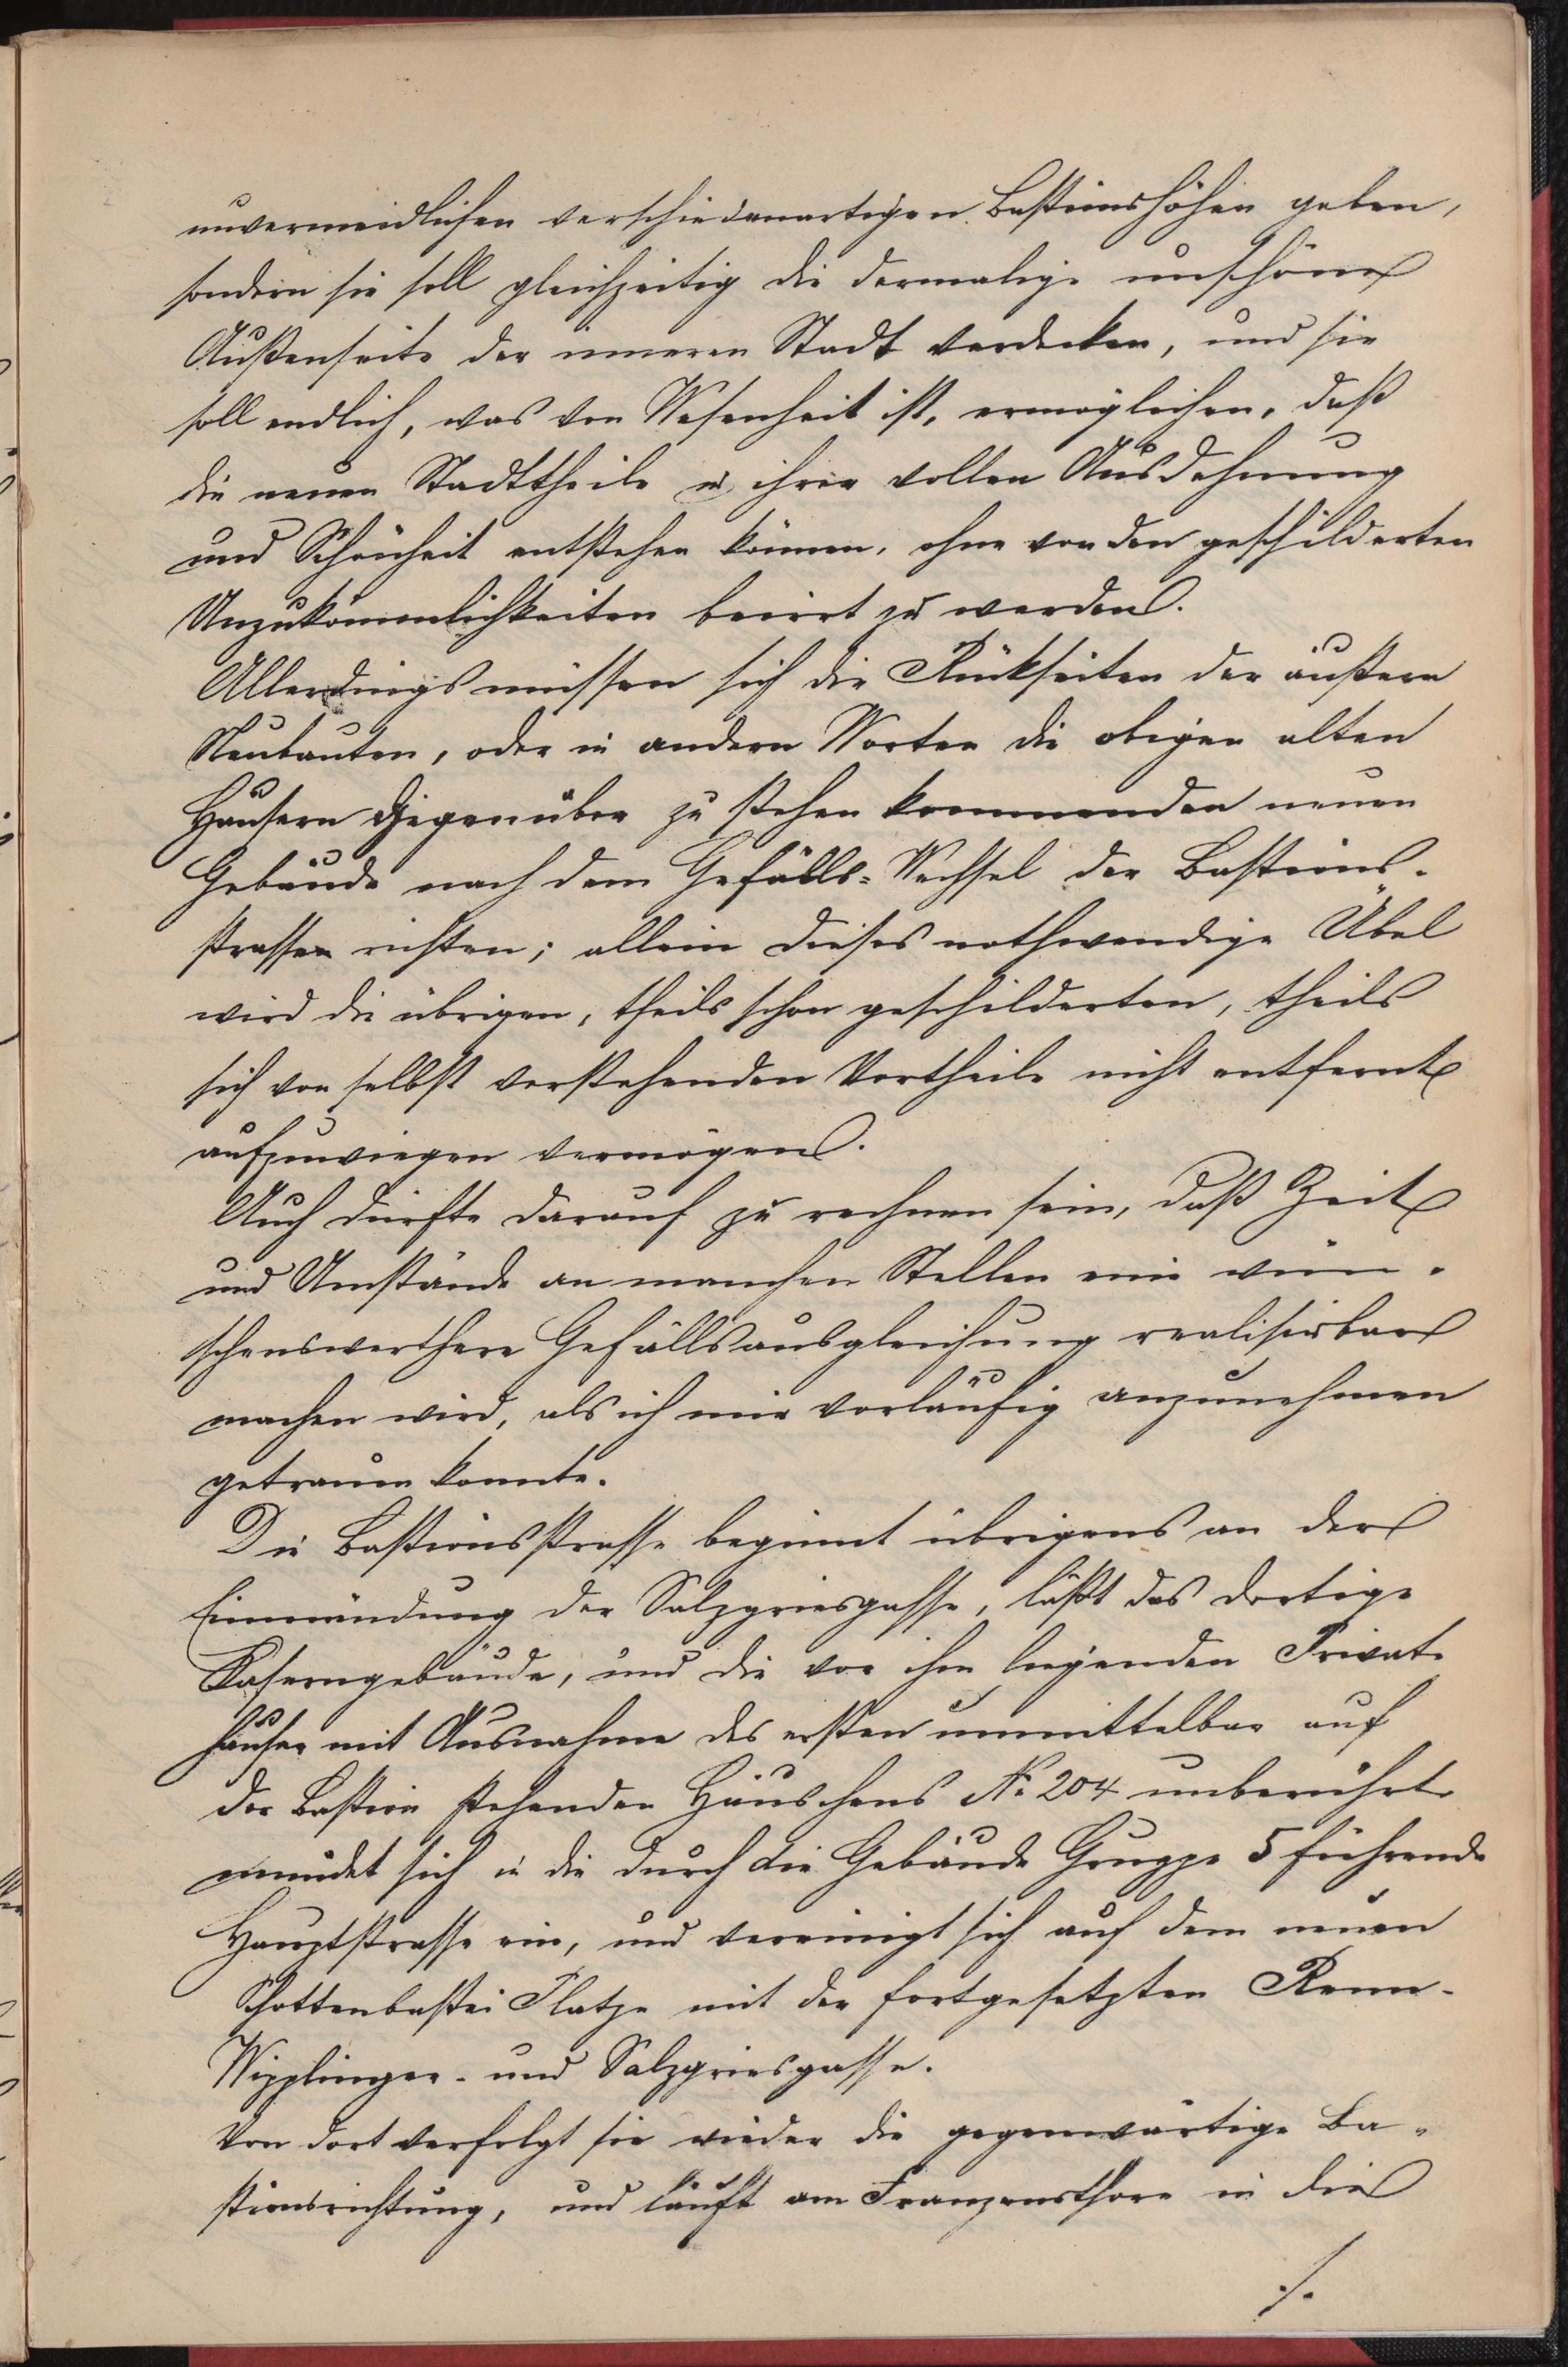 unvermeidlichen verschiedenartigen Bastionshöhen geben,
sondern sie soll gleichzeitig die dermalige unschöne
Außenseite der inneren Stadt verdecken, und sie
soll endlich, was von Wesenheit ist, ermöglichen, daß
die neuen Stadttheile in ihrer vollen Ausdehnung
und Schönheit entstehen können, ohne von den geschilderten
Unzukömmlichkeiten beirrt zu werden.
Allerdings müssen sich die Rückseiten der äußern
Neubauten, oder in andern Worten die obigen alten
Häusern gegenüber zu stehen kommenden neuen
Gebäude nach dem Gefälls-Wechsel der Bastions-
strassen richten; allein dieses nothwendige Übel
wird die übrigen, theils schon geschilderten, theils
sich von selbst verstehenden Vortheile nicht entfernt
aufzuwiegen vermögen.
Auch dürfte darauf zu rechnen sein, daß Zeit
und Umstände an manchen Stellen eine wün-
schenswerthere Gefällsausgleichung realisirbar
machen wird, als ich mir vorläufig anzunehmen
getrauen konnte.
Die Bastionsstrasse beginnt übrigens an der
Einmündung der Salzgriesgasse, läßt das dortige
Kaserngebäude, und die vor ihm liegenden Privat-
häuser mit Ausnahme des ersten unmittelbar auf
der Bastion stehenden Häuschens No 204 unberührt
mündet sich in die durch die Gebäude Gruppe 5 führende
Hauptstrasse ein, und vereinigt sich auf dem neuen
Schottenbastei Platze mit der fortgesetzten Renn-
Wipplinger- und Salzgriesgasse.
Von dort verfolgt sie wieder die gegenwärtige Ba-
stionsrichtung, und läuft am Franzensthore in die
./.